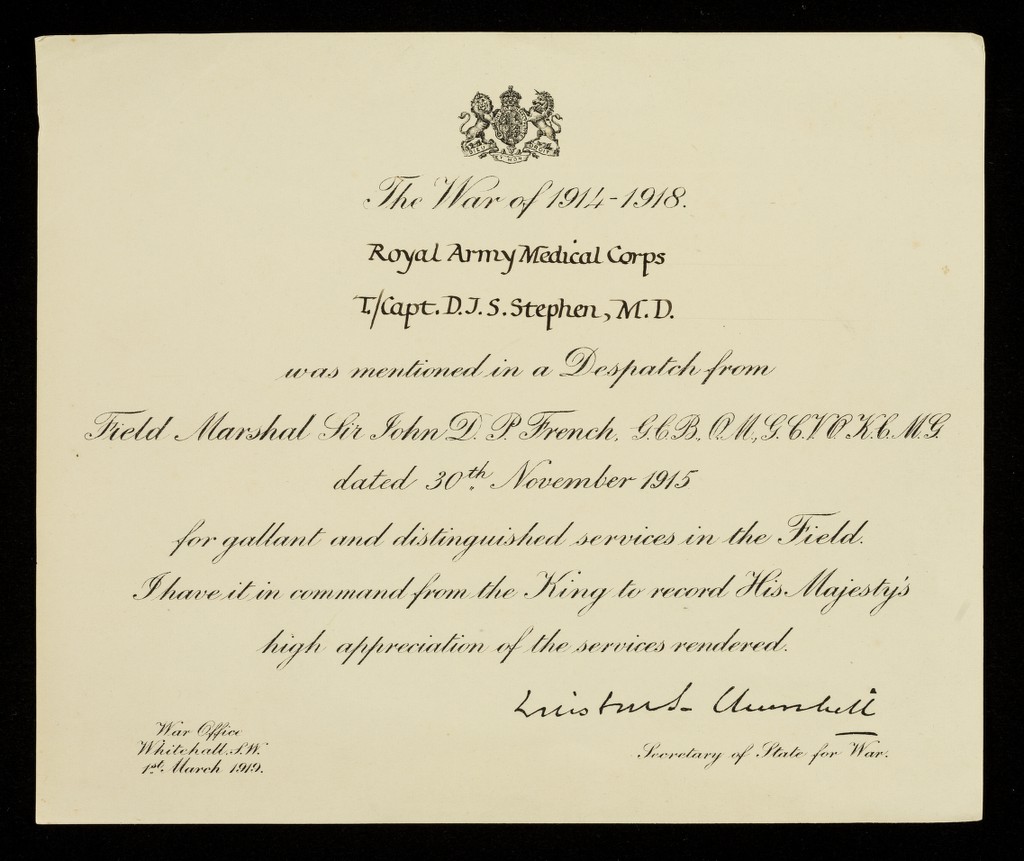 DIEU ET MON DROIT
The War of 1914-1918.
Royal Army Medical Corps
T./Capt. D.J.S. Stephen, M.D.
was mentioned in a Despatch from
Field Marshal Sir John D. P. French, G.C.B., O.M., G.C.V.O. K.C.M.G.
dated 30th November 1915
for gallant and distinguished services in the Field.
I have it in command from the King to record His Majesty's
high appreciation of the services rendered.
Winston S. Churchill
War Office
Whitehall, S.W.
1st March 1919.
Secretary of State for War.